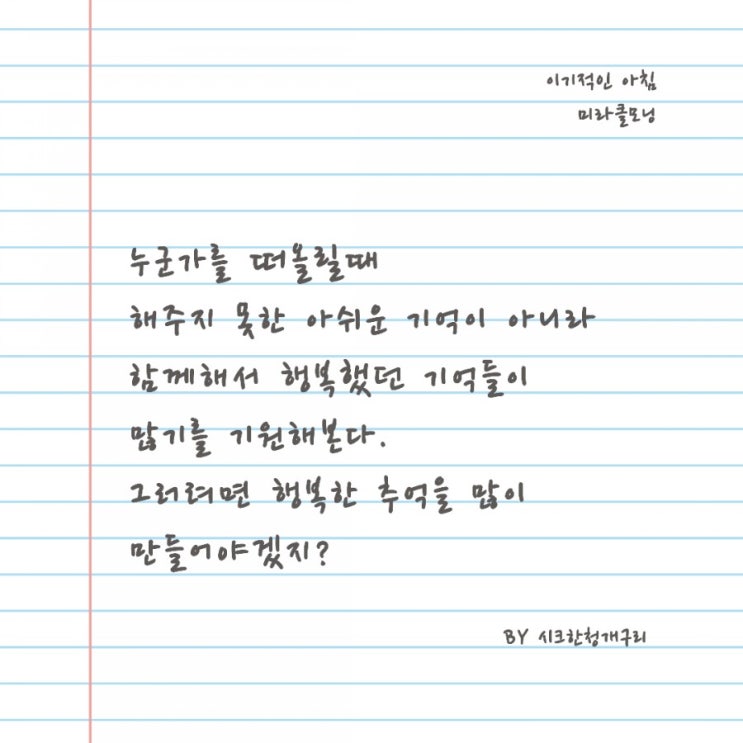 이기적인 아침
미라클모닝
누군가를 떠올릴때
해주지 못한 아쉬운 기억이 아니라
함께해서 행복했던 기억들이
많기를 기원해본다.
그러려면 행복한 추억을 많이
만들어야겠지?
BY 시크한청개구리